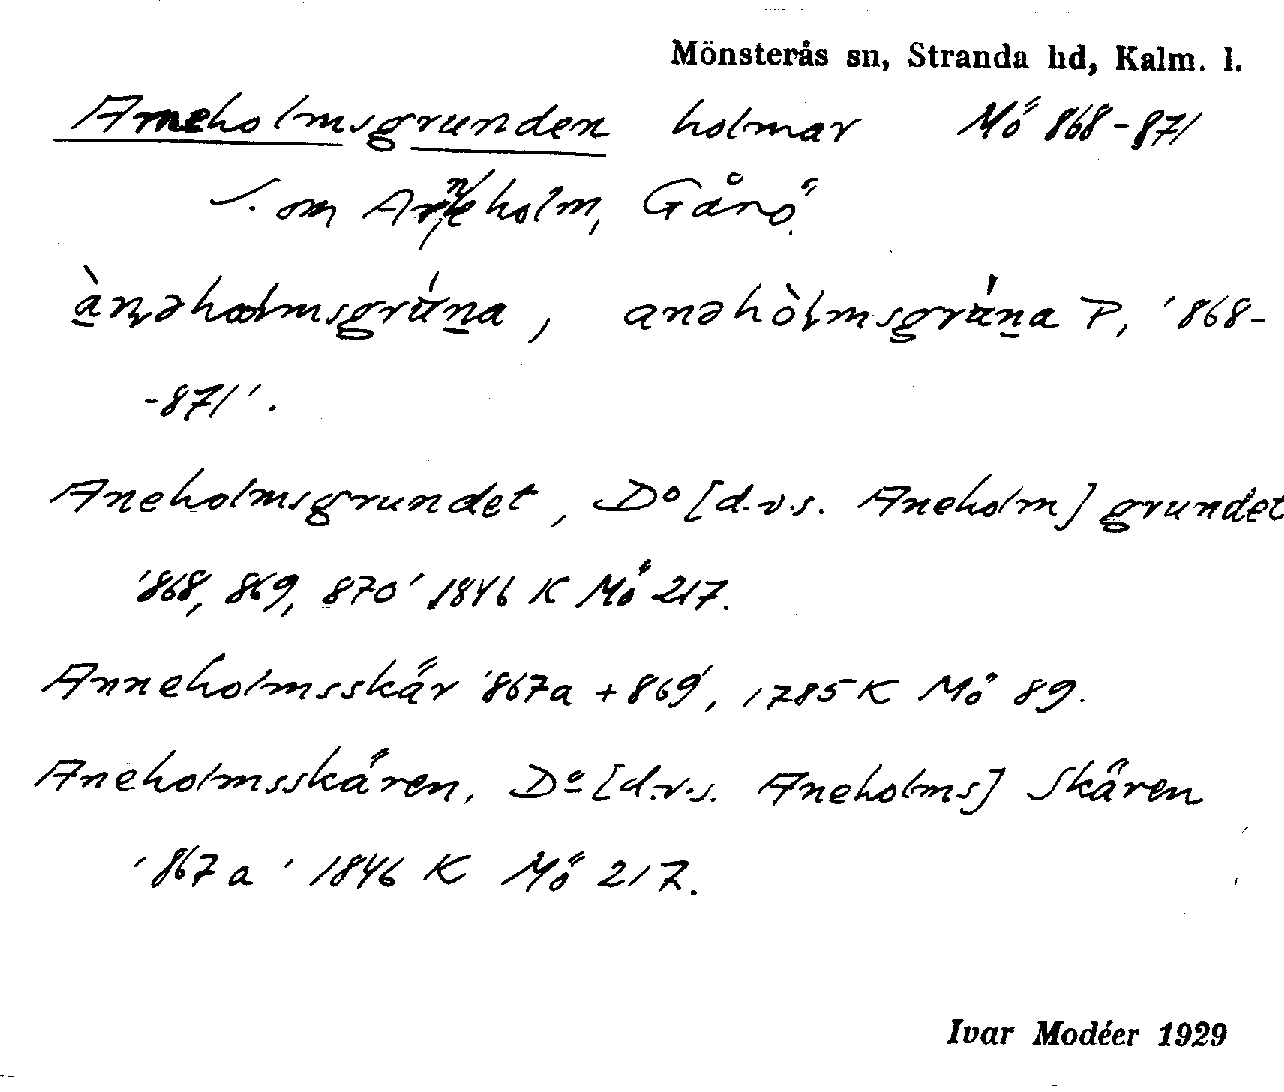 Mönsterås sn, Stranda hd, Kalm. l.
Arneholmsgrunden holmar Mö 868-871
S. om Arneholm, Gårö.
Aneholmsgrundet, Do [d.v.s. Aneholm] grundet
'868, 869, 870' 1846 K Mö 217.
Anneholmsskär '867a + 869', 1785 K Mö 89.
Aneholmsskären, Do [d.v.s. Aneholms] Skären
'867a' 1846 K Mö 217.
Ivar Modéer 1929